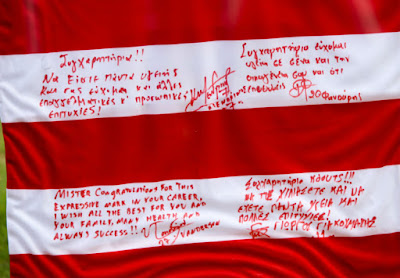 Συγχαρητήρια!!
Να είσαι πάντα υγειής
και σας εύχομαι και άλλες
επαγγελματικές κ' προσωπικές
επιτυχίες!
Συγχαρητήρια εύχομαι
υγεία σε σένα και την
οικογένειά σου και ότι
επιθυμείς
MISTER CONGRATULATIONS FOR THIS
EXPRESSIVE MARK IN YOUR CAREER,
I WISH ALL THE BEST FOR YOU AND
YOUR FAMILY, MANY HEALTH AND
ALWAYS SUCCESS!!
Συγχαρητήρια ΚΟΟΥΤΣ!!!
ΝΑ ΤΙΣ ΧΙΛΙΑΣΕΤΕ ΚΑΙ ΝΑ
ΕΧΕΤΕ ΠΑΝΤΑ ΥΓΕΙΑ ΚΑΙ
ΠΟΛΛΕΣ ΕΠΙΤΥΧΙΕΣ!
ΓΙΩΡΓΟΣ